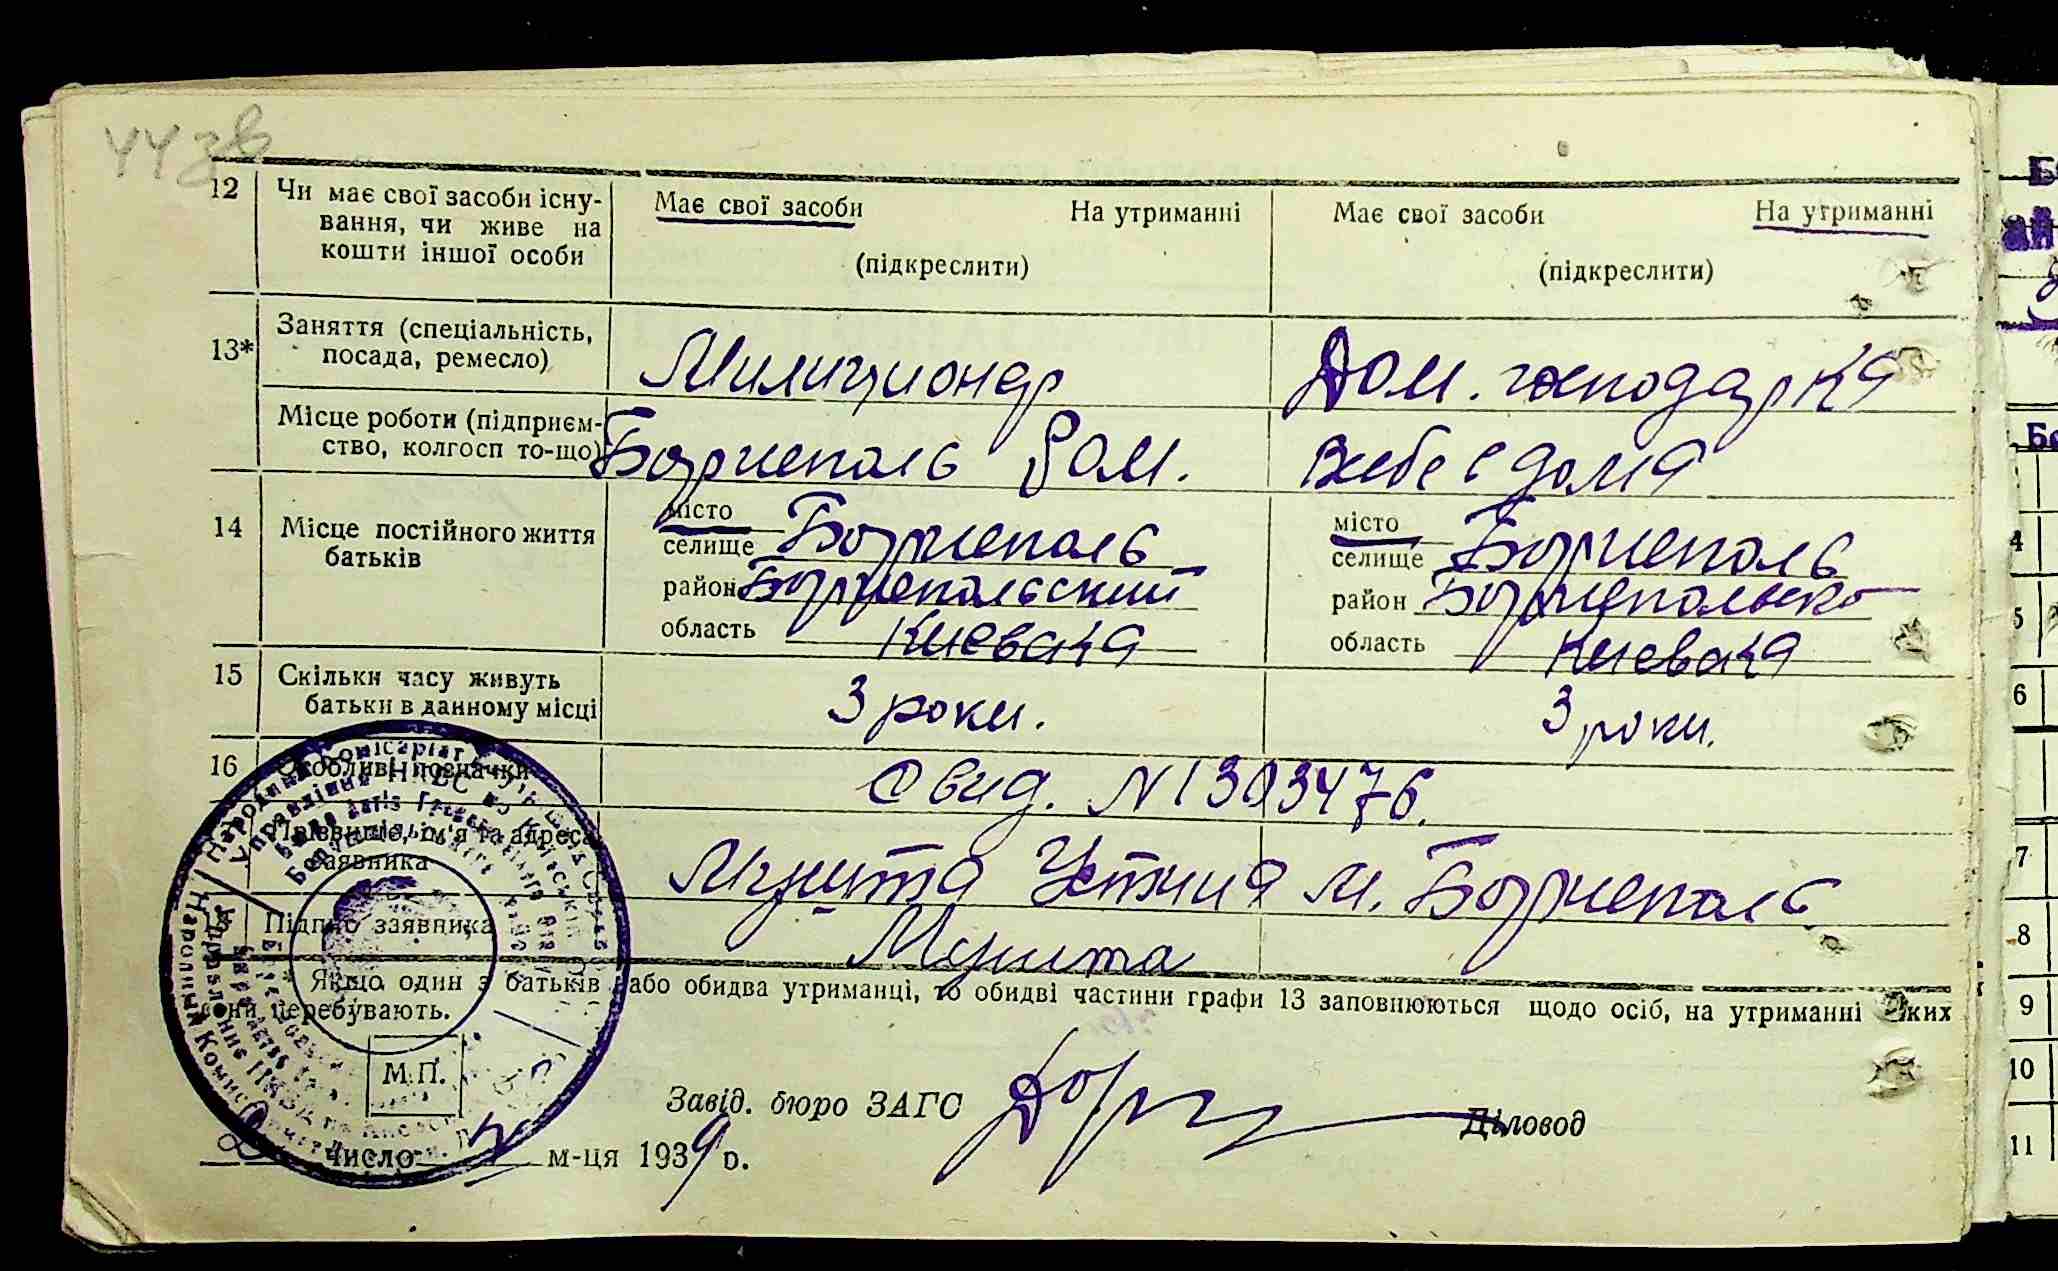 44зв
12 Чи має свої засоби існу-
вання, чи живе на
кошти іншої особи
Має свої засоби На утриманні
(підкреслити)
Має свої засоби На утриманні
(підкреслити)
13* Заняття (спеціальність,
посада, ремесло)
Милиционер
Дом. господарка
Місце роботи (підприєм-
ство, колгосп то-що)
Борисполь РОМ.
в себе дома
14 Місце постійного життя
батьків
місто
селище Борисполь
район Бориспольский
область Киевска
місто
селище Борисполь
район
область Киевска
15 Скільки часу живуть
батьки в данному місці
3 роки.
3 роки.
16 Особливі позначки
Свид. N 1303476.
Прізвище, ім'я та адреса
заявника
Мушта Устина м. Борисполь
Підпис заявника
Мушта
Якщо один з батьків або обидва утриманці, то обидві частини графи 13 заповнюються щодо осіб, на утриманні яких
вони перебувають.
М.П.
Завід. бюро ЗАГС
Діловод
число м-ця 1939 р.
Народний Комісаріат
Управління НКВС по Київській
Бо
4
5
6
7
8
9
10
11